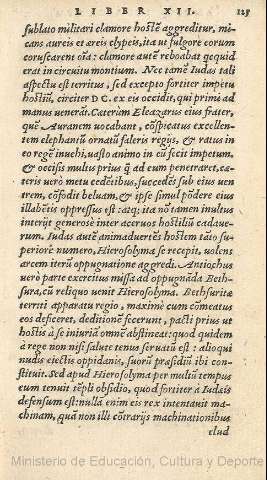 LIBER XII. 125
sublato militari clamore hostẽ aggreditur, mi-
cans aureis et æreis clypeis, ita ut fulgore eorum
coruscarent oĩa: clamore autẽ reboabat quicquid
erat in circuitu montium. Nec tamẽ Iudas tali
aspectu est territus, sed excepto fortiter impetu
hostiũ, circiter DC. ex eis occidit, qui primi ad
manus uenerãt. Cæterùm Eleazarus eius frater,
quẽ Auranem uocabant, cõspicatus excellen-
tem elephantũ ornatũ faleris regijs, & ratus in
eo regẽ inuehi, uasto animo in eũ fecit impetum,
& occisis multis prius q̃ ad eum penetraret, cæ-
teris uerò metu cedẽtibus, succedẽs sub eius uen
trem, cõfodit beluam, & ipse simul põdere eius
illabẽtis oppressus est: atq; ita nõ tamen inultus
interijt generosè inter aceruos hostiliũ cadaue-
rum. Iudas autẽ animaduertẽs hostem tãto su-
periorẽ numero, Hierosolyma se recepit, uolens
arcem iterũ oppugnatione aggredi. Antiochus
uerò parte exercitus missa ad oppugnãdã Beth-
sura, cũ reliquo uenit Hierosolyma. Bethsuritæ
territi apparatu regio, maximè cum cõmeatus
eos deficeret, deditionẽ fecerunt, pacti prius ut
hostis à se iniuria omnẽ abstineat: quod quidem
à rege non nisi salute tenus seruatũ est: alioqui
nudis eiectis oppidanis, suorũ præsidiũ ibi con-
stituit. Sed apud Hierosolyma per multũ tempus
eum tenuit tẽpli obsidio, quod fortiter à Iudæis
defensum est: nulla enim eis rex intentauit ma-
chinam, quã non illi cõtrarijs machinationibus
elud
Ministerio de Educación, Cultura y Deporte